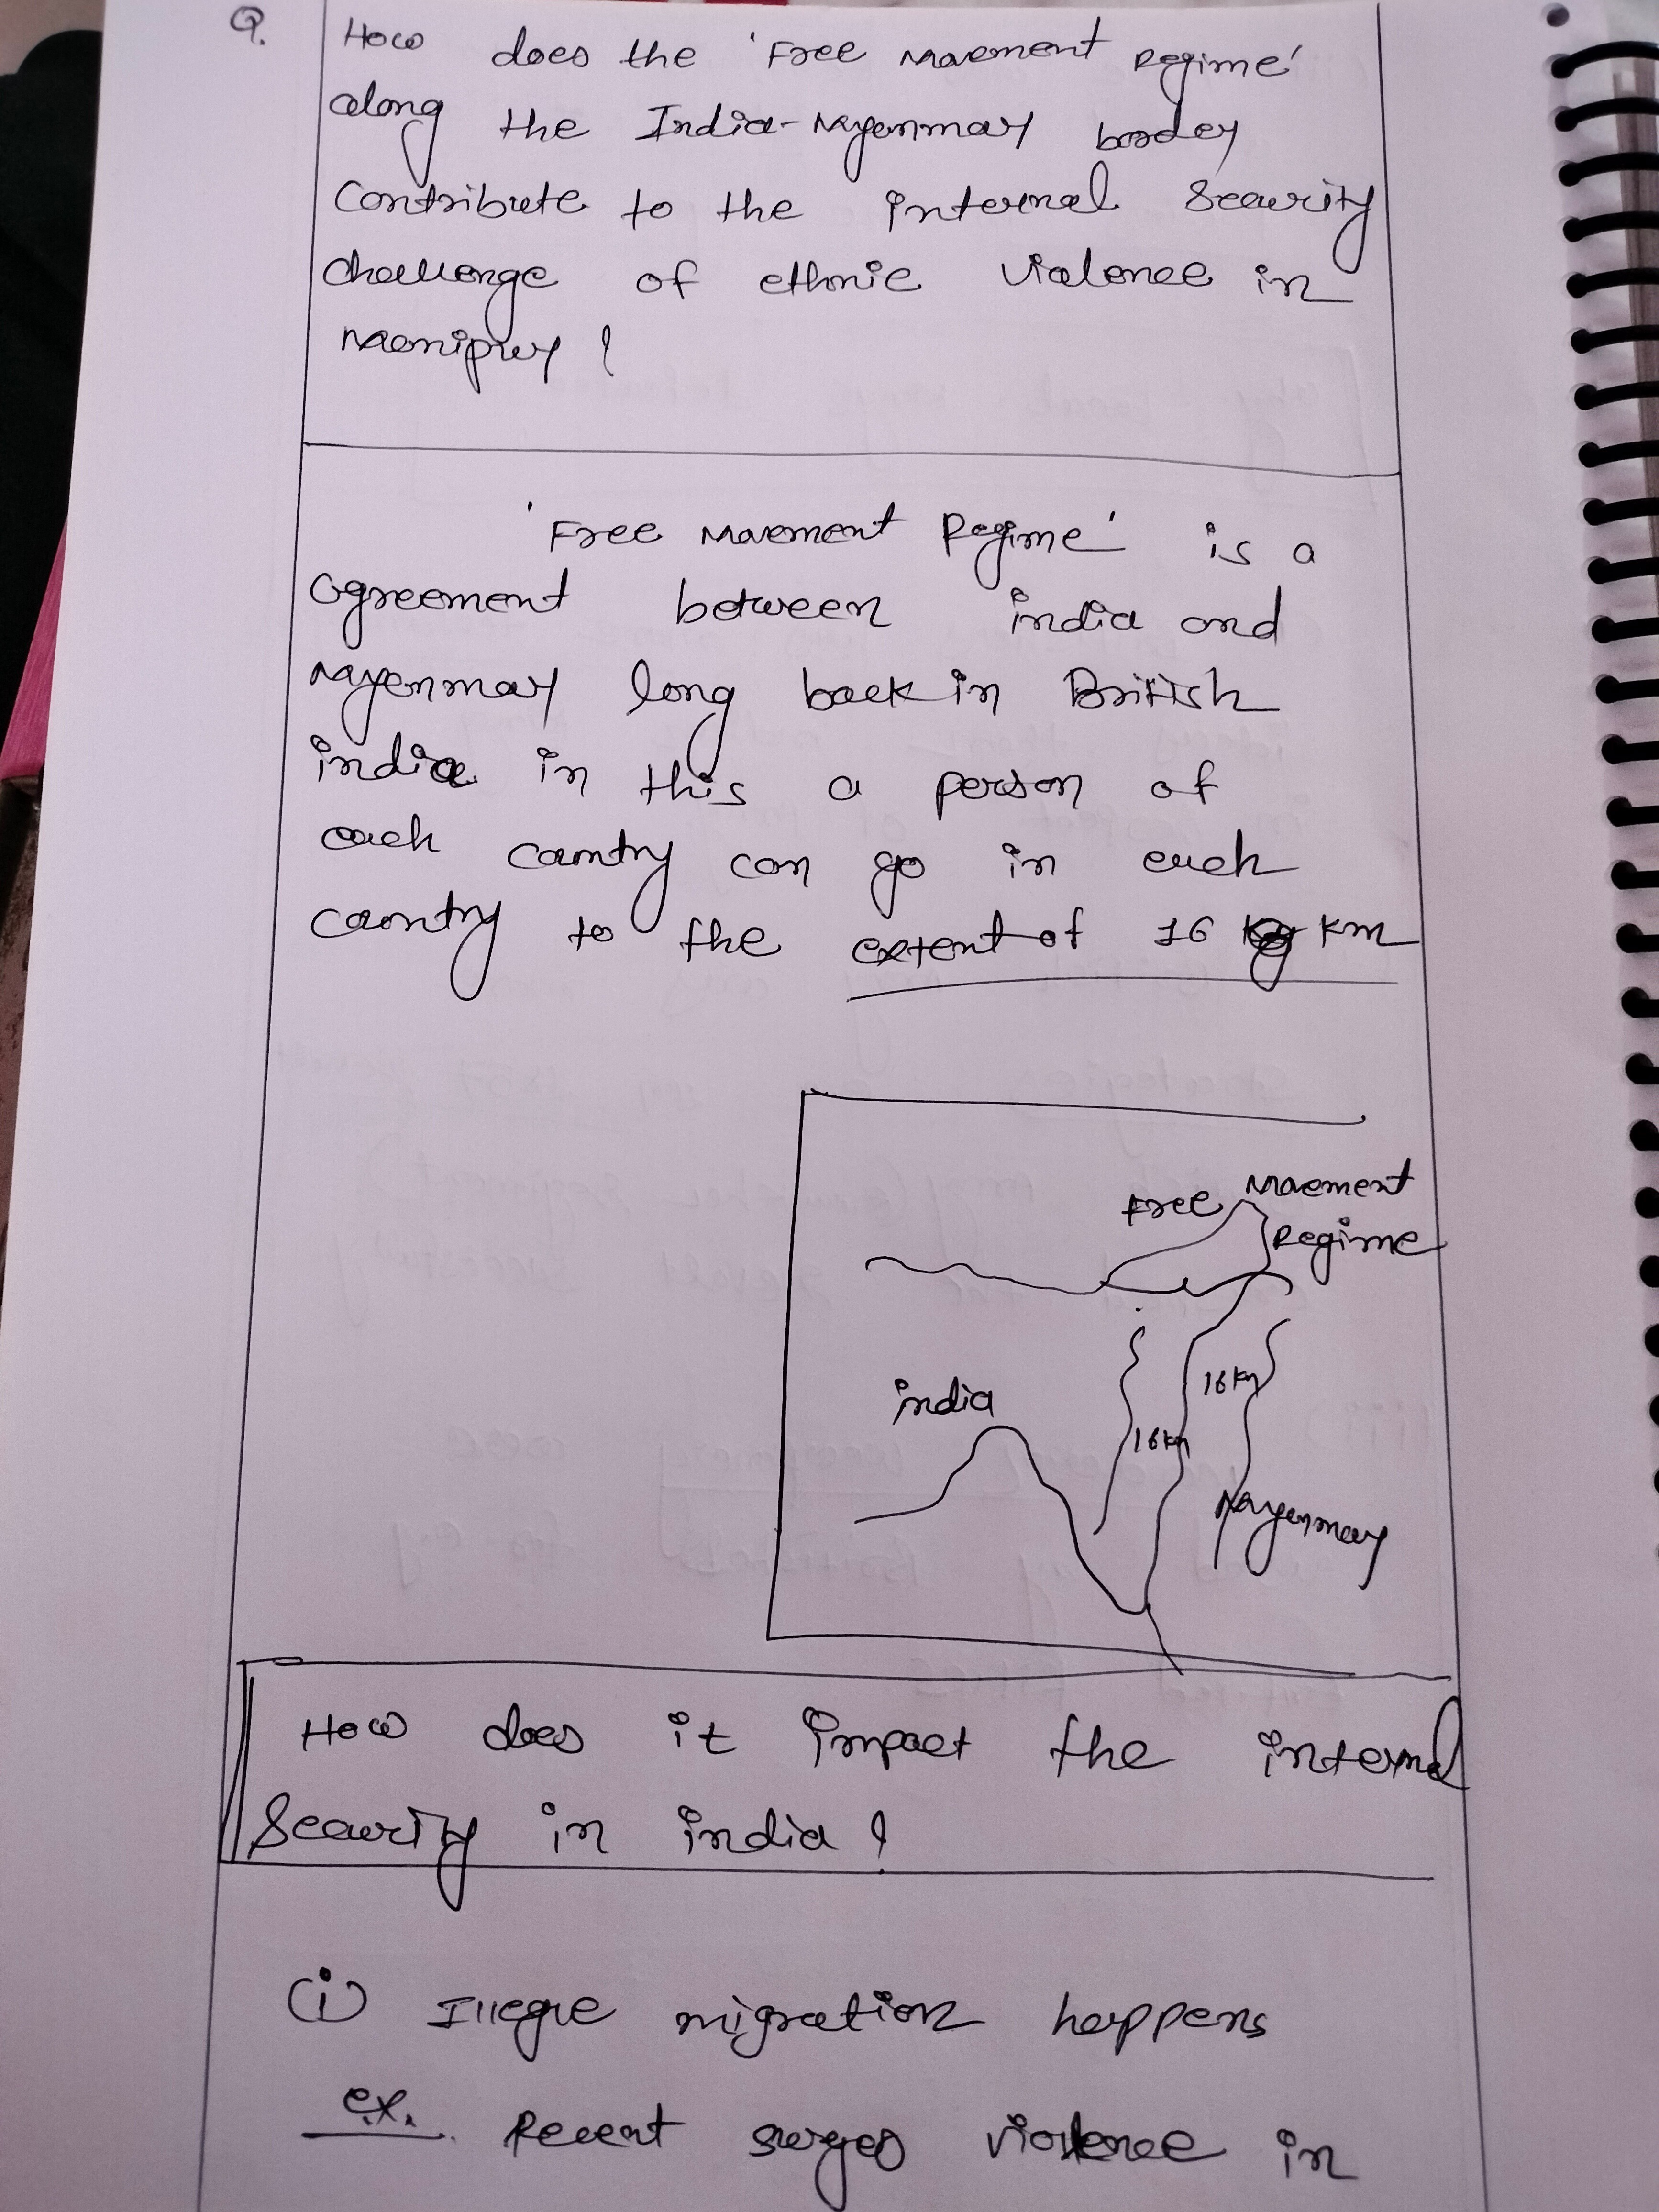 Q. How does the 'Free Movement Regime'
along the India-Myenmay border
Contribute to the internal Security
challenge of ethnic violence in
Manipur ?
'Free Movement Regime' is a
agreement between india and
Myenmay long back in British
india in this a person of
each country can go in each
country to the extent of 16 km
Free Movement
Regime
india
16km
16km
Myenmay
How does it impact the internal
Security in india ?
(i) Illegle migration happens
ex. Recent surges violence in